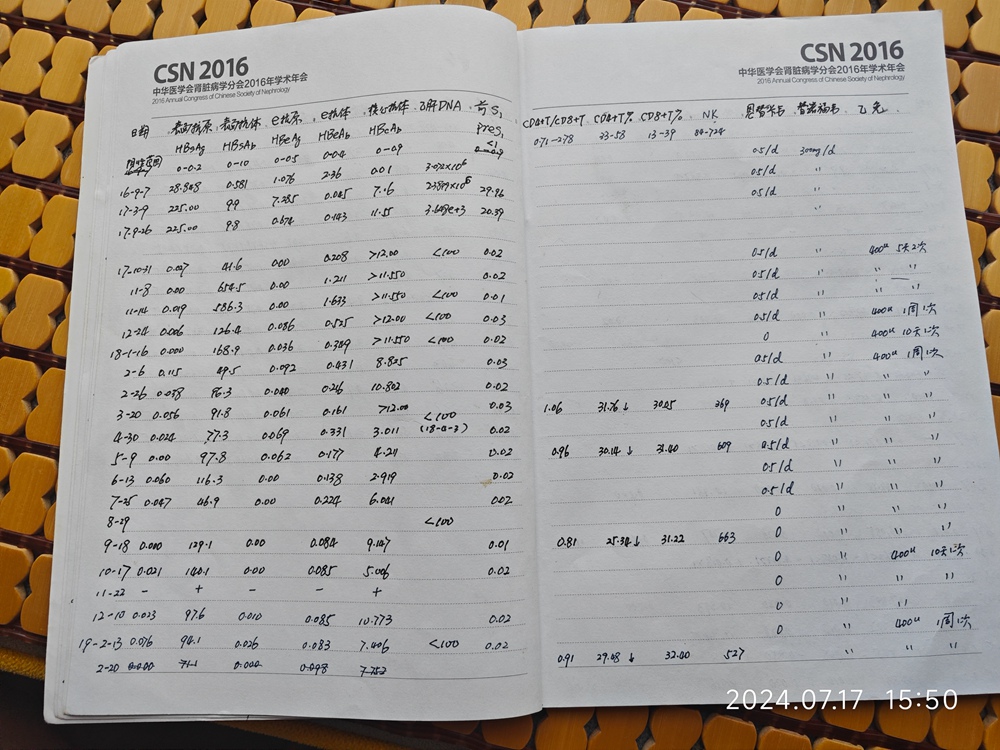 CSN 2016
中华医学会肾脏病学分会2016年学术年会
2016 Annual Congress of Chinese Society of Nephrology
日期 表面抗原 表面抗体 e抗原 e抗体 核心抗体 乙肝DNA 前S1
HBsAg HBsAb HBeAg HBeAb HBcAb PreS1
0-0.2 0-10 0-0.5 0-0.4 0-0.9 <1
16-9-7 28.848 0.581 1.076 2.36 0.01
17-3-9 225.00 99 7.285 0.045 7.16 29.96
17-9-26 225.00 98 0.674 0.143 11.55 20.39
17-10-31 0.027 41.6 0.00 0.208 >12.00 <100 0.02
11-8 0.00 654.5 0.00 1.211 >11.550 0.02
11-14 0.019 586.3 0.00 1.633 >11.550 <100 0.01
12-24 0.006 126.4 0.086 0.525 >12.00 <100 0.03
18-1-16 0.000 168.9 0.036 0.349 >11.550 <100 0.02
2-6 0.115 49.5 0.092 0.431 8.825 0.03
2-26 0.038 96.3 0.040 0.216 10.802 0.02
3-20 0.056 91.8 0.061 0.161 >12.00 0.03
<100
4-30 0.024 77.3 0.069 0.331 3.011 0.02
5-9 0.00 97.8 0.062 0.177 4.211 0.02
6-13 0.060 116.3 0.00 0.138 2.919 0.02
7-25 0.047 46.9 0.00 0.224 6.041 0.02
8-29 <100
9-18 0.000 129.1 0.00 0.084 9.147 0.01
10-17 0.021 140.1 0.00 0.085 5.006 0.02
11-22 - + - - +
12-10 0.023 97.6 0.010 0.085 10.773 0.02
19-2-13 0.076 94.1 0.026 0.083 7.406 <100 0.02
2-20 0.000 71.1 0.000 0.098 7.752
CSN 2016
中华医学会肾脏病学分会2016年学术年会
2016 Annual Congress of Chinese Society of Nephrology
CD4+T/CD8+T CD4+T% CD8+T% NK 恩替卡韦 替诺福韦
0.71-2.78 33-58 13-39 84-724
0.5/d 300mg/d
0.5/d "
0.5/d "
"
0.5/d " 400u 5天2次
0.5/d " " "
0.5/d " " "
0.5/d " 400u 1周1次
0 " 400u 10天1次
0.5/d " 400u 1周1次
0.5/d " " "
1.06 31.76↓ 30.05 369 0.5/d " " "
0.5/d " " "
0.96 30.14↓ 31.40 609 0.5/d " " "
0.5/d " " "
0.5/d " " "
0 " " "
0.81 25.34↓ 31.22 663 0 " " "
0 " 400u 10天1次
0 " " "
0 " "
0 " 400u 1周1次
0.91 29.08↓ 32.00 527 " " "
2024.07.17 15:50